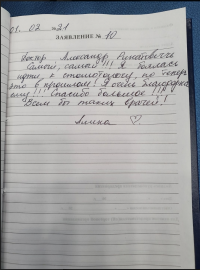 01. 02 21
ЗАЯВЛЕНИЕ № 10
Доктор Александр Ринатович
Самый, самый!!! Я боялась
идти к стоматологу, но теперь
это в прошлом! Я очень благодарна
ему!!! Спасибо большое!!!
Всем бы таких врачей!
Алина ♡